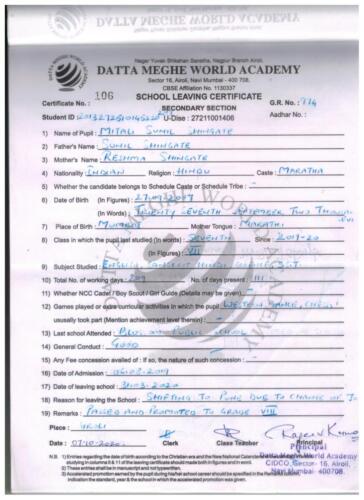 DATTA MEGHE WORLD ACADEMY
Nagar Yuvak Shikshan Sanstha, Nagpur Branch Airoli.
DATTA MEGHE WORLD ACADEMY
Sector 16, Airoli, Navi Mumbai - 400 708.
CBSE Affiliation No. 1130337
SCHOOL LEAVING CERTIFICATE
Certificate No.: 106
SECONDARY SECTION
G.R. No.: 774
Student ID U-Dise : 27211001406 Aadhar No.:
1) Name of Pupil : MITALI SUNIL SHINGATE
2) Father's Name : SUNIL SHINGATE
3) Mother's Name : RESHMA SHINGATE
4) Nationality : INDIAN Religion : HINDU Caste : MARATHA
5) Whether the candidate belongs to Schedule Caste or Schedule Tribe : -
6) Date of Birth (In Figures) : 27.09.2007
(In Words) : TWENTY SEVENTH SEPTEMBER TWO
7) Place of Birth : MUMBAI Mother Tongue : MARATHI
8) Class in which the pupil last studied (In words) : SEVENTH Since : 2019-20
(In Figures) : VII
9) Subject Studied : ENGLISH HINDI
10) Total No. of working days : No. of days present : 111
11) Whether NCC Cadet / Boy Scout / Girl Guide (Details may be given) : -
12) Games played or extra curricular activities in which the pupil WESTERN DANCE, CHESS
usually took part (Mention achievement level therein) : -
13) Last school Attended : PUBLIC SCHOOL
14) General Conduct : GOOD
15) Any Fee concession availed of : If so, the nature of such concession : -
16) Date of Admission : 06.03.2019
17) Date of leaving school : 31.03.2020
18) Reason for leaving the School : SHIFTING TO PUNE DUE TO CHANGE OF J
19) Remarks : PASSED AND PROMOTED TO GRADE VIII
Place : AIROLI
Date : 07.10.2020 Clerk Class Teacher Principal
Principal
Datta Meghe World Academy
CIDCO, Sector- 16, Airoli,
Navi Mumbai- 400708.
N.B. 1) Entries regarding the date of birth according to the Christian era and the New National Calendar
studying in column 8 & 11 of the leaving certificate should made both in figures and in words.
2) These entries shall be in manuscript and not typewritten.
3) Accelerated promotion earned by the pupil during his/her school career should be specified in the
indication the standard, year & the school in which the accelerated promotion was given.